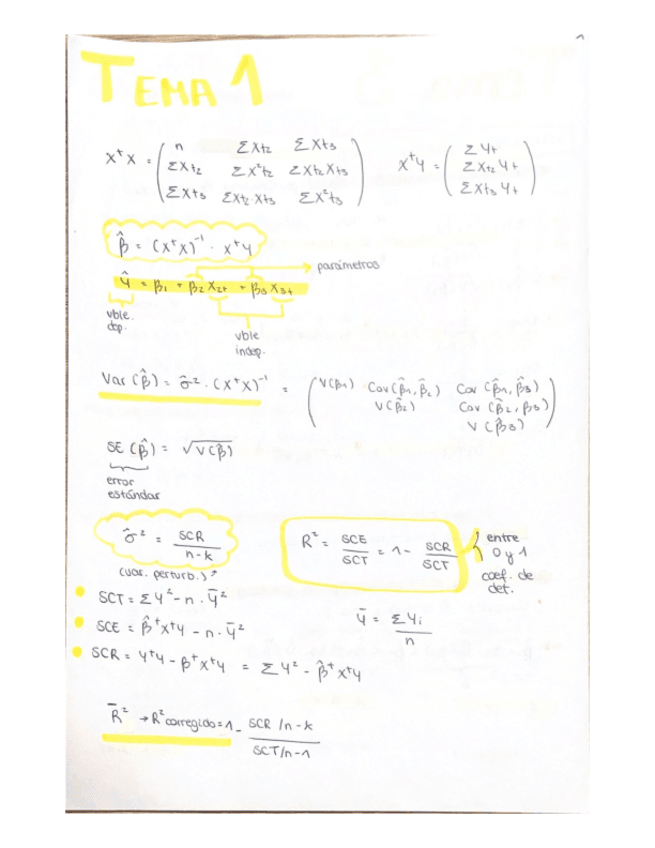 TEMA 1
X^t X = ( n ΣXt2 ΣXt3
ΣXt2 ΣX²t2 ΣXt2Xt3
ΣXt3 ΣXt2·Xt3 ΣX²t3 )
X^t Y = ( ΣYt
ΣXt2Yt
ΣXt3Yt )
β̂ = (X^t X)⁻¹ · X^t Y
→ parámetros
Ŷ = β1 + β2 X2t + β3 X3t
vble.
dep.
vble
indep.
Var(β̂) = σ̂² · (X^t X)⁻¹ = ( V(β̂1) Cov(β̂1, β̂2) Cov(β̂1, β̂3)
V(β̂2) Cov(β̂2, β3)
V(β̂3) )
SE(β̂) = √V(β̂)
error
estándar
σ̂² = SCR / n-k
(var. perturb.)
R² = SCE / SCT = 1 - SCR / SCT
entre
0 y 1
coef. de
det.
• SCT = ΣY² - n · Ȳ²
Ȳ = ΣYi / n
• SCE = β̂^t X^t Y - n · Ȳ²
• SCR = Y^t Y - β^t X^t Y = ΣY² - β̂^t X^t Y
R̄² → R² corregido = 1 - SCR / n-k
SCT / n-1